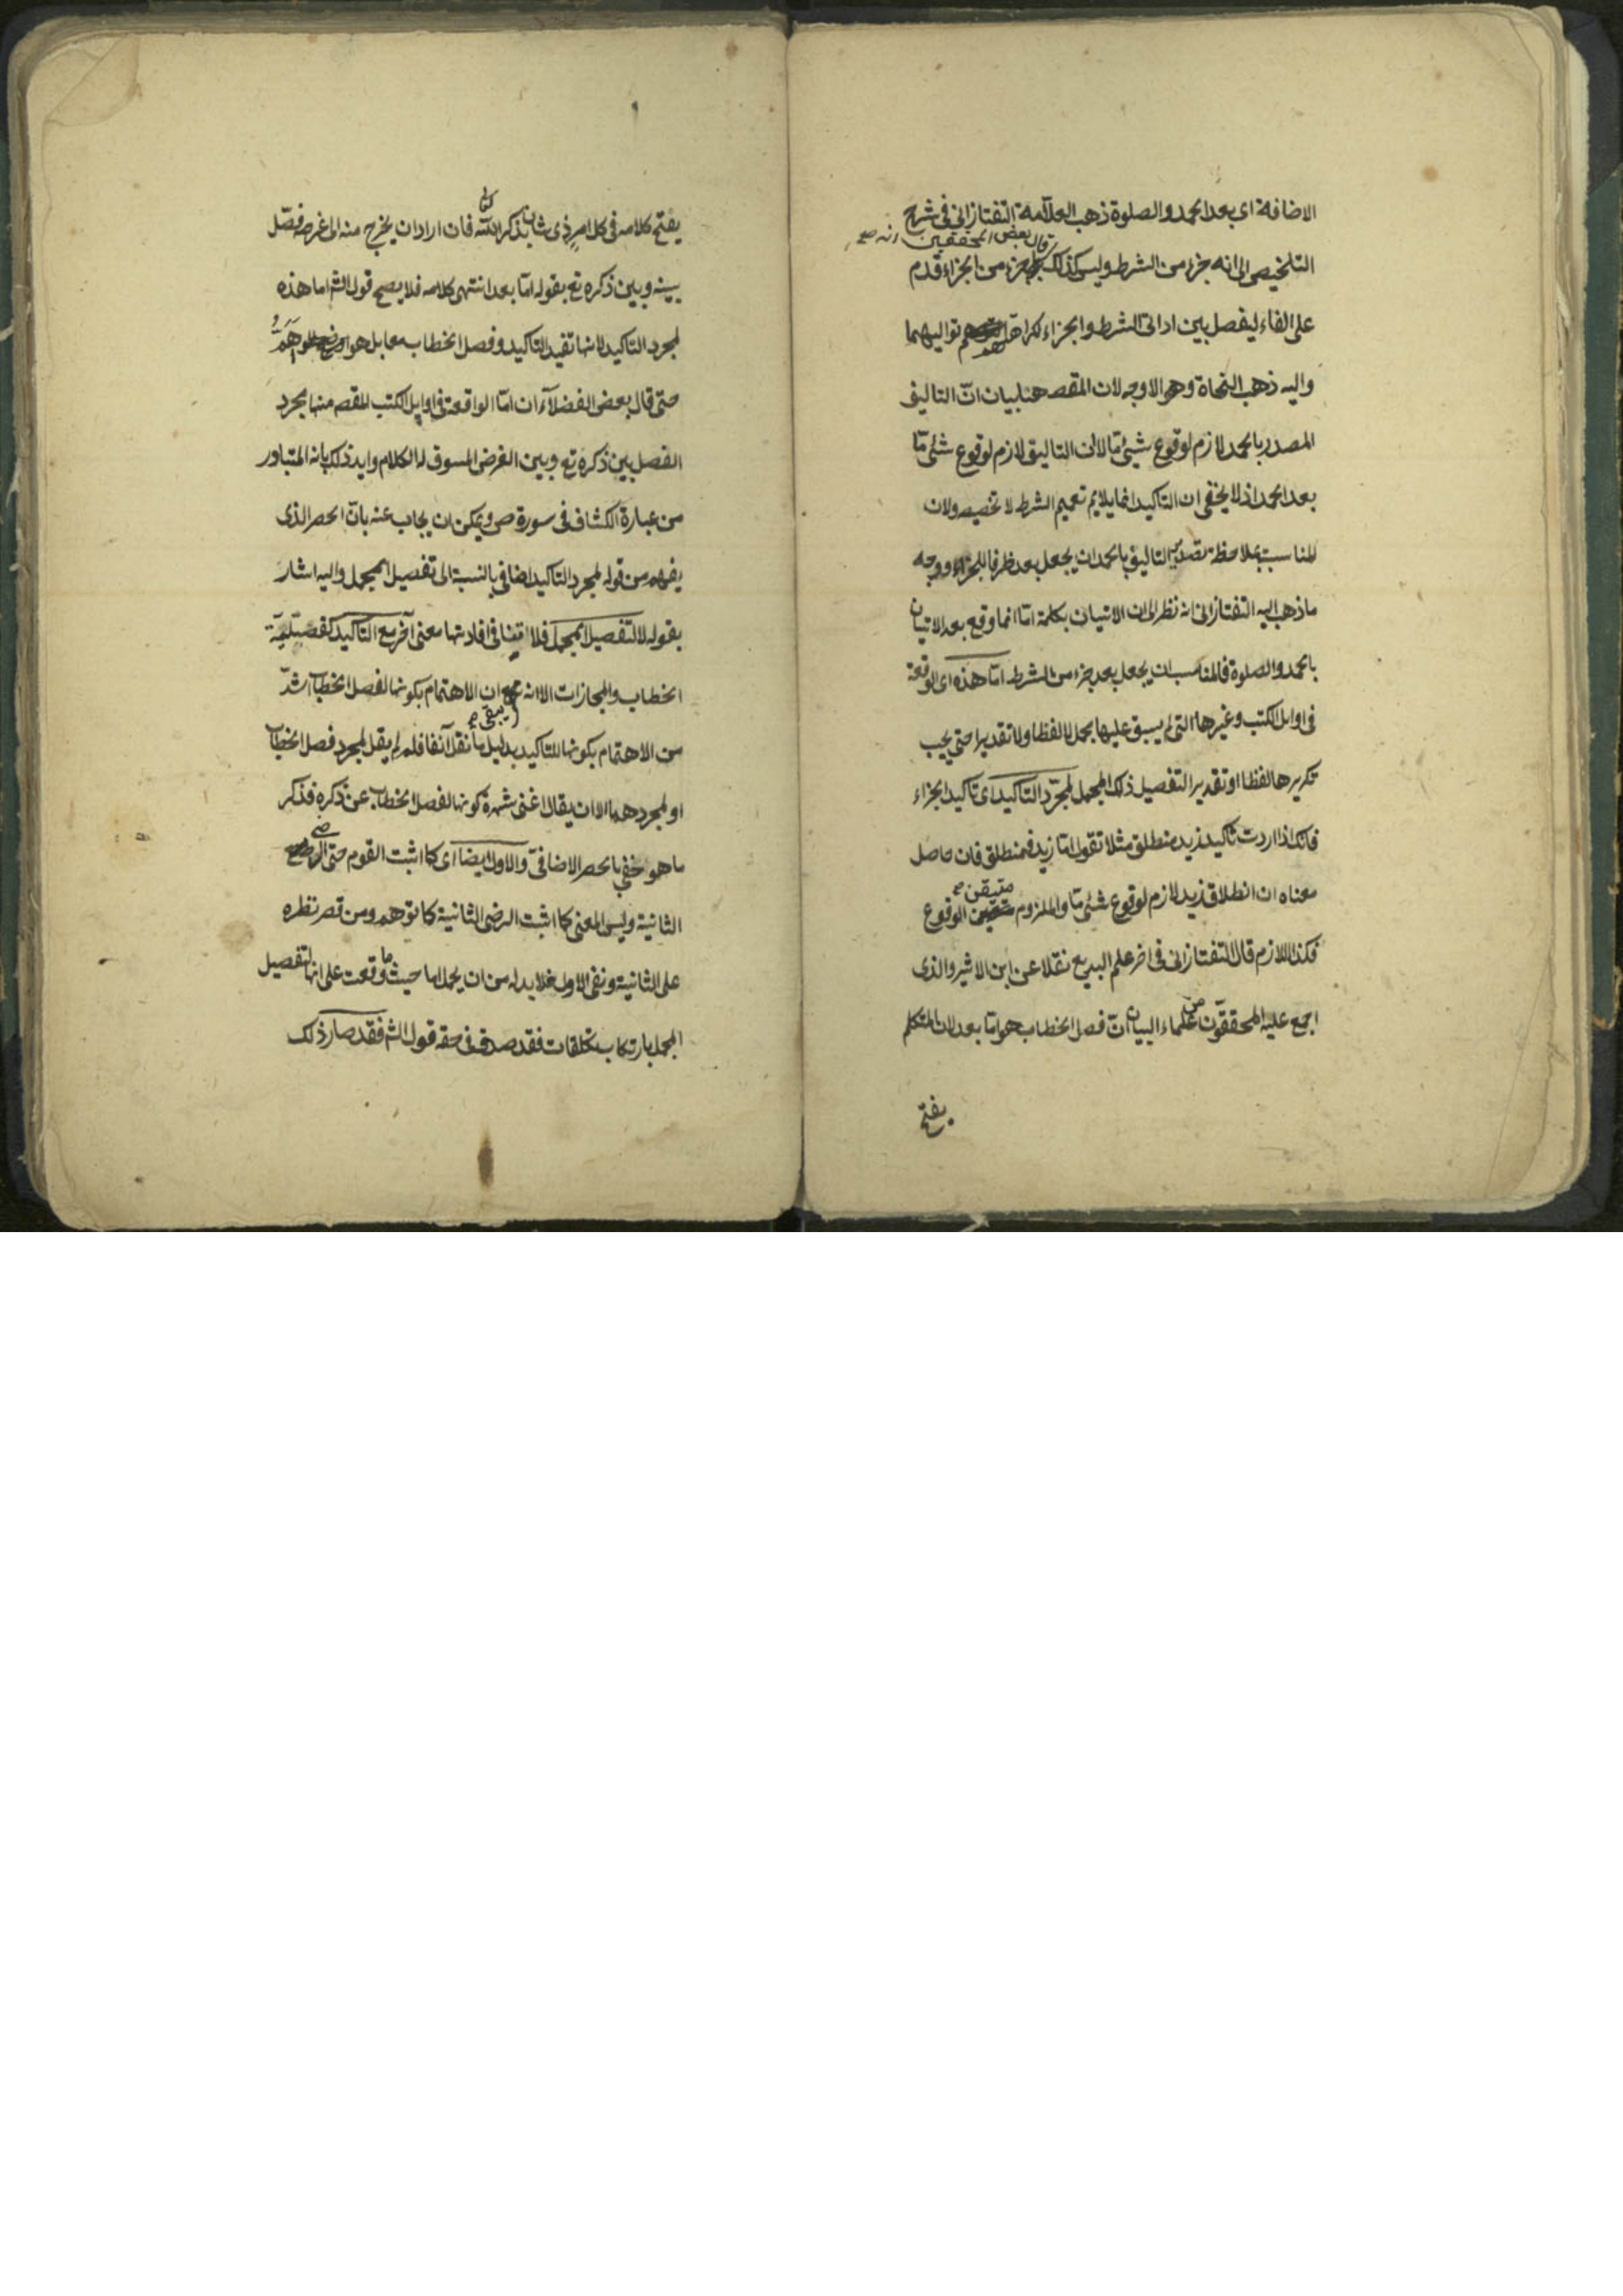 الاضافة اى بعد الحمد والصلوة ذهب العلآمة التفتازانى فى شرح
وقال بعض المحققين انه صح
التلخيص الى انه جزء من الشرط وليس كذلك بل جزء من الجزاء قدم
على الفاء ليفصل بين اداتى الشرط والجزاء لكراهة تواليهما
واليه ذهب النحاة وهو الاوجه لان المقصه هنا بيان انّ التاليف
المصدر بالحمد لازم لوقوع شيئ مّا لا ان التاليف لازم لوقوع شئى مّا
بعد الحمد اذ لا يخفى ان التاكيد انما يلايم تعميم الشرط لا تخصيصه ولان
المناسب بملاحظة تصدير التاليف بالحمد ان يجعل بعد ظرفا للجزاء ووجه
ما ذهب اليه التفتازانى انه نظر الى ان الاتيان بكلمة امّا انما وقع بعد الاتيان
بالحمد والصلوة فالمناسب ان يجعل بعد جزء من الشرط امّا هذه اى الوقعة
فى اوايل الكتب وغيرها التى لم يسبق عليها مجمل لا لفظا ولا تقديرا حتى يجب
تكريرها لفظا او تقديرا لتفصيل ذلك المجمل لمجرّد التاكيد اى تاكيد الجزاء
فانك اذا اردت تاكيد زيد منطلق مثلا تقول امّا زيد فمنطلق فان حاصل
معناه ان انطلاق زيد لازم لوقوع شئى مّا والملزوم متيقن صح الوقوع
فكذا اللازم قال التفتازانى فى اخر علم البديع نقلا عن ابن الاثير والذى
اجمع عليه المحققون من علماء البيان انّ فصل الخطاب هو امّا بعد لان المتكلم
يفتح
يفتح كلامه فى كل امر ذى شان بذكر الله تعالى فان اراد ان يخرج منه الى غرضه فصّل
بينه وبين ذكره تع بقوله امّا بعد انتهى كلامه فلا يصح قول الشم اما هذه
لمجرد التاكيد لانها تفيد التاكيد وفصل الخطاب معا بل هو اهمّ
حتى قال بعض الفضلآء ان امّا الواقعة فى اوايل الكتب المقصه منها مجرد
الفصل بين ذكره تع وبين الغرض المسوق له الكلام وايد ذلك بانه المتبادر
من عبارة الكشاف فى سورة ص ويمكن ان يجاب عنه بانّ الحصر الذى
يفهم من قوله لمجرد التاكيد اضافى بالنسبة الى تفصيل المجمل واليه اشار
بقوله لا لتفصيل المجمل فلا تنافى افادتها معنى آخر مع التاكيد كفصليّة
الخطاب والمجازات الا انه يبقى صح ان الاهتمام بكونها لفصل الخطاب اشدّ
من الاهتمام بكونها للتاكيد بدليل ما نقل آنفا فلم لم يقل لمجرد فصل الخطاب
او لمجردهما الا ان يقال اغنى شهرة كونها لفصل الخطاب عن ذكره فذكر
ما هو خفى بالحصر الاضافى والاول ايضا اى كما اثبت القوم حتى الرضى
الثانية وليس المعنى كما اثبت الرضى الثانية كما توهم ومن قصر نظره
على الثانية ونفى الاول فلا بد له من ان يحمل اما حيث ما وقعت على انها لتفصيل
المجمل بارتكاب تكلفات فقد صدق فى حقه قول الشم فقد صار ذلك